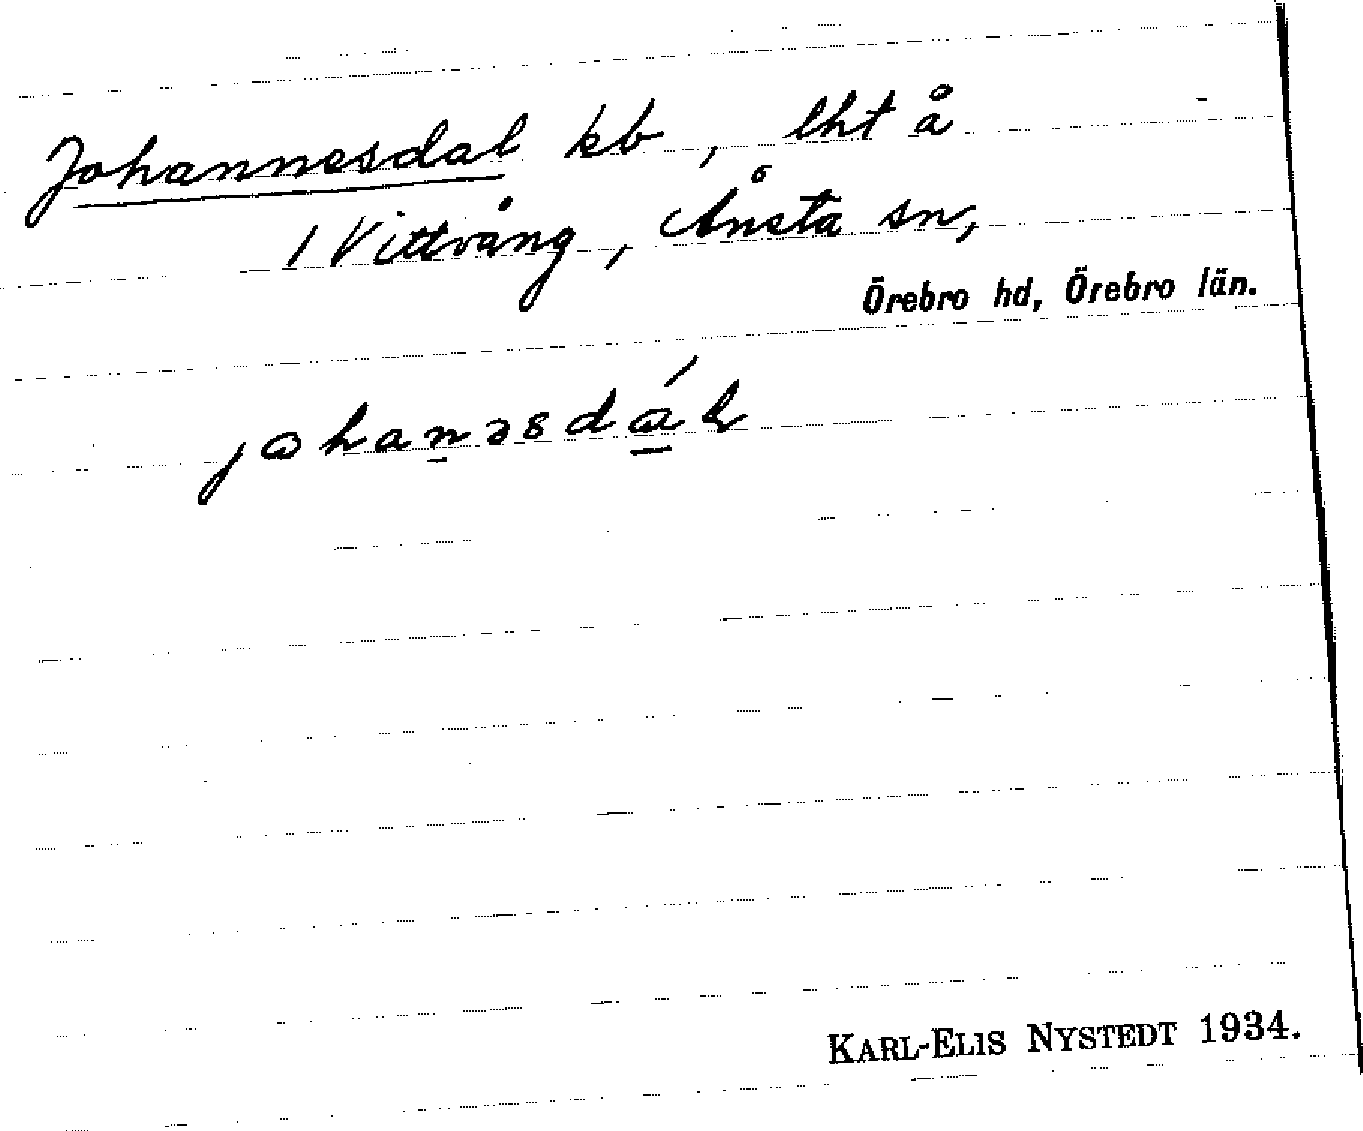 Johannesdal kb, lht å
1 Vittvång, Ånsta sn,
Örebro hd, Örebro län.
johanəsdál
KARL-ELIS NYSTEDT 1934.